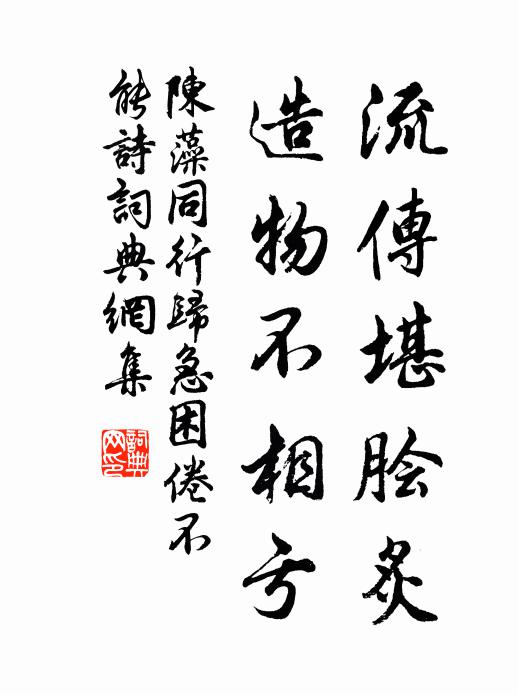 流傳堪膾炙
造物不相亏
陳藻同行歸急困倦不
能詩詞典網集
詞典网印